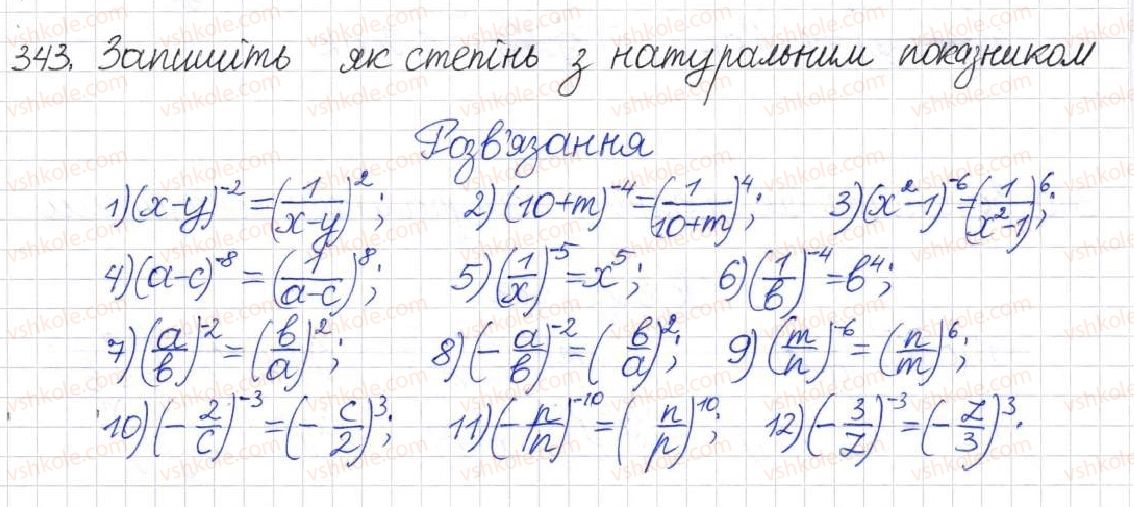 343. Запишіть як степінь з натуральним показником
Розв'язання
1) (x-y)^-2 = (1/(x-y))^2; 2) (10+m)^-4 = (1/(10+m))^4; 3) (x^2-1)^-6 = (1/(x^2-1))^6;
4) (a-c)^-8 = (1/(a-c))^8; 5) (1/x)^-5 = x^5; 6) (1/в)^-4 = в^4;
7) (a/в)^-2 = (в/a)^2; 8) (-a/в)^-2 = (в/a)^2; 9) (m/n)^-6 = (n/m)^6;
10) (-2/c)^-3 = (-c/2)^3; 11) (-p/n)^-10 = (n/p)^10; 12) (-3/z)^-3 = (-z/3)^3.